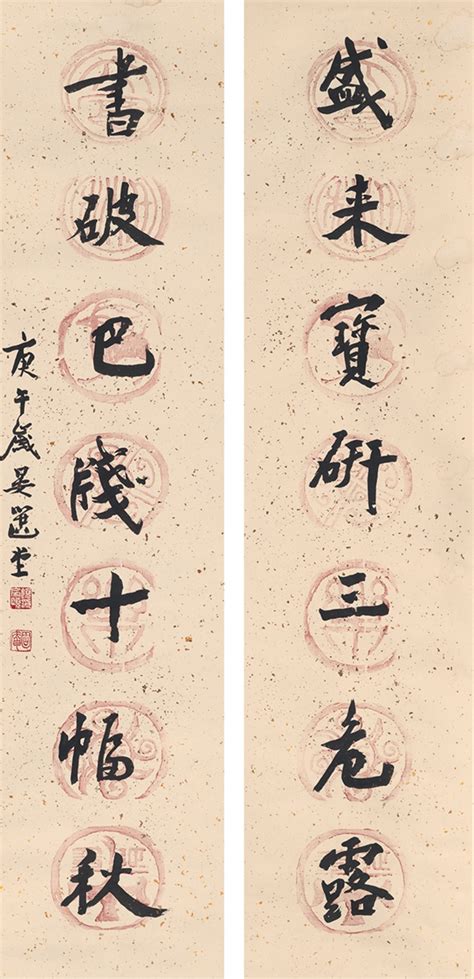 盛来寶研三危露
書破巴牋十幅秋
庚午歲晏選堂